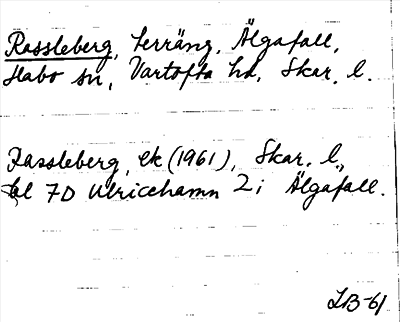 Rassleberg, terräng, Älgafall,
Habo sn, Vartofta hd, Skar. l.
Rassleberg, ek (1961), Skar. l.,
bl 7D Ulricehamn 2i Älgafall.
LB-61